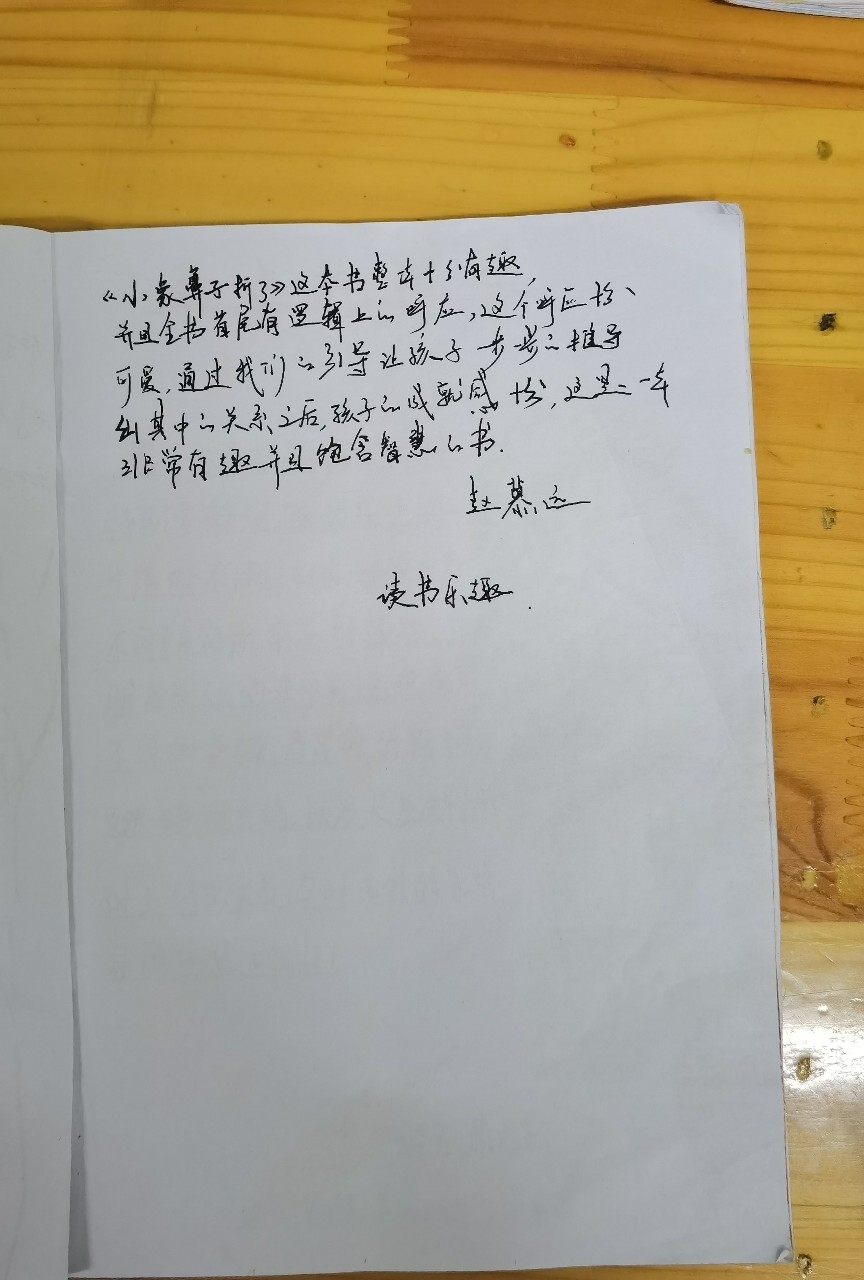 《小象鼻子折了》这本书整本十分有趣，
并且全书首尾有逻辑上的呼应，这个呼应十分
可爱，通过我们的引导让孩子一步步的推导
出其中的关系之后，孩子的成就感十分，这是一本
非常有趣并且饱含智慧的书.
赵慕远
读书乐趣.